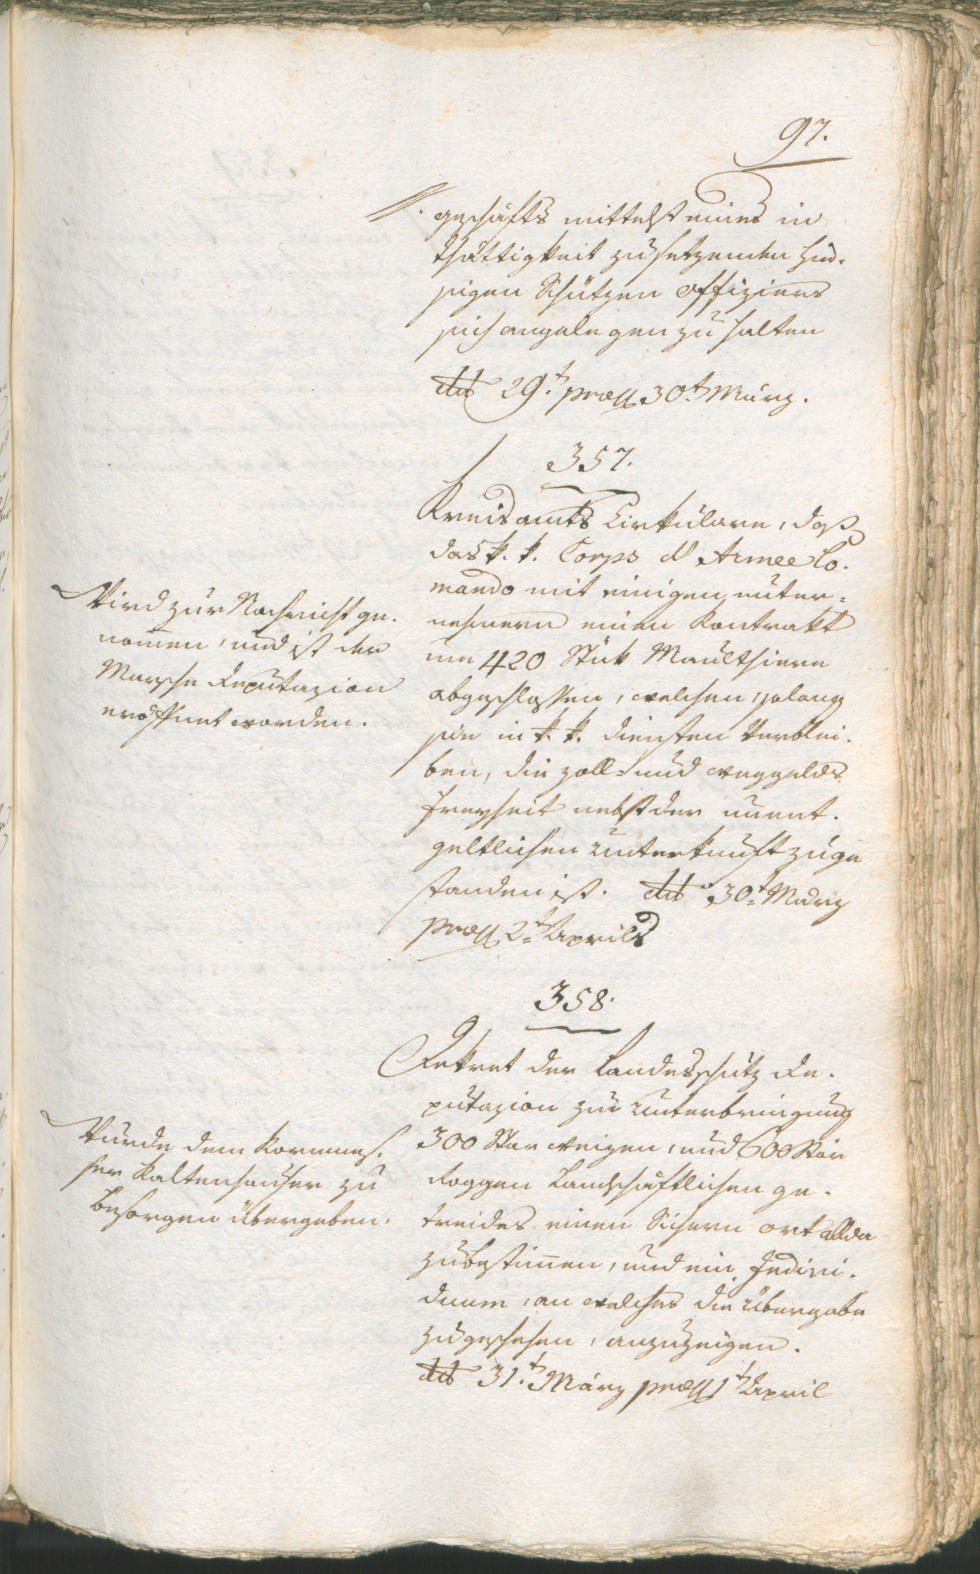 97.
geschäfts mittelst eines in
thättigkeit zu setzenden hie-
sigen Schützen Offiziers
sich angelegen zu halten
ddt 29.t præs 30.t März.
357.
Kreisamts Cirkulare, daß
das k. k. Corps d'Armee Co-
mando mit einigen unter-
nehmern einen Kontrakt
um 420 Stük Maulthiere
abgeschlossen, welchen, solang
sie in k. k. diensten Verblei-
ben, die zoll- und weggelds
freyheit nebst der unent-
geltlichen Unterkunft zuge
standen ist. ddt 30.t März
præs 2.t Aprils
Wird zur Nachricht ge-
nommen, und ist der
Marsche Deputazion
eröffnet worden.
358.
Dekret der Landesschutz De-
putazion zur Unterbringung
300 Star weizen, und 600 Star
Roggen Landschäftlichen ge-
treides einen Sichern ort allda
zubestimmen, und ein Indivi-
duum, an welches die Übergabe
zugeschehen, anzuzeigen.
ddt 31.t März præs 1.t April
Wurde dem Kornmes-
ser Kaltenhauser zu
besorgen übergeben.